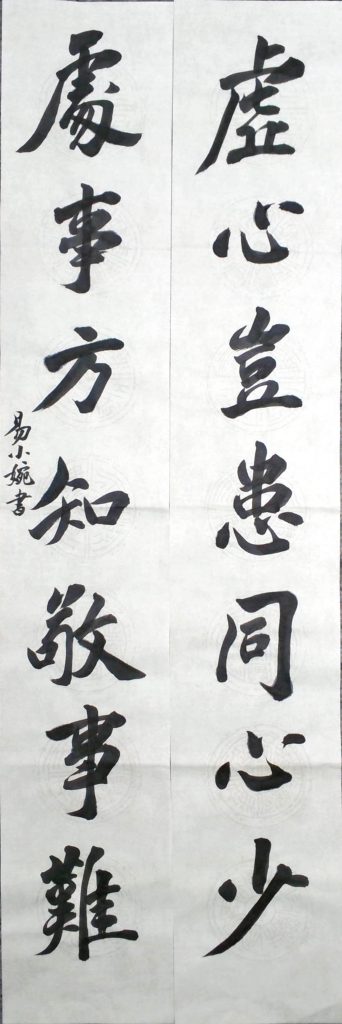 虛心豈患同心少
處事方知敬事難
易小婉書